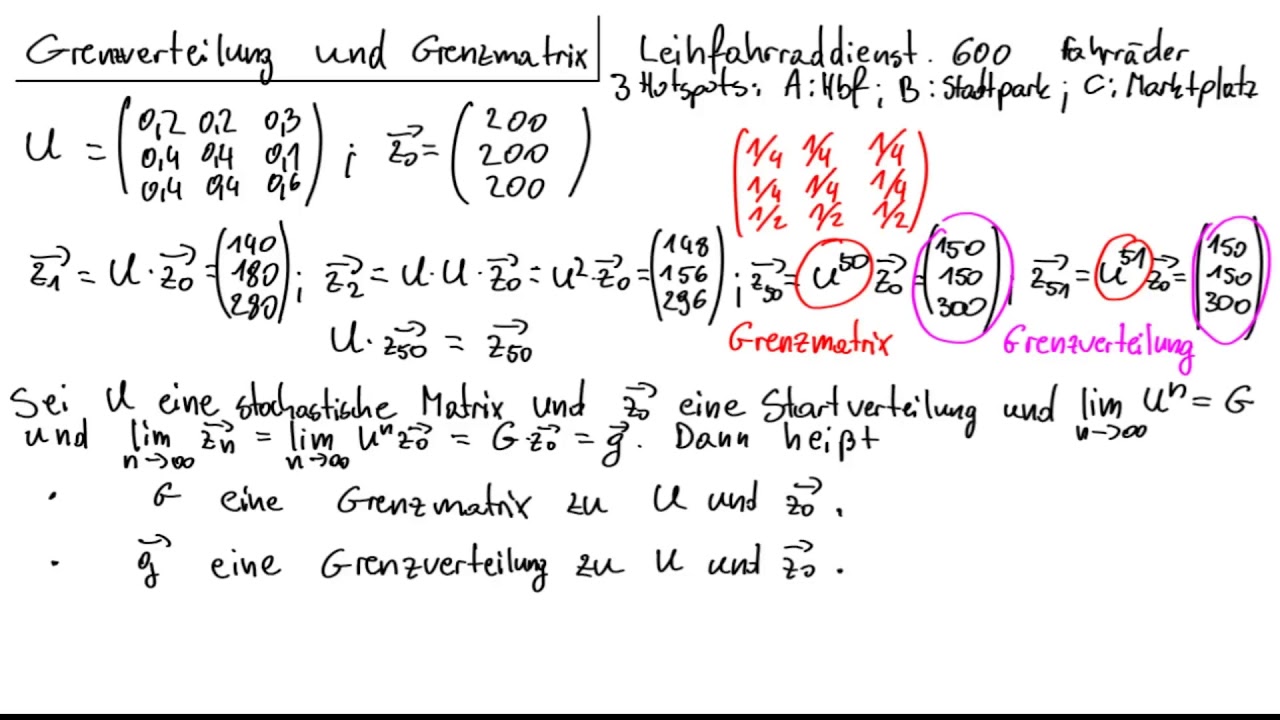 Grenzverteilung und Grenzmatrix
Leihfahrraddienst. 600 Fahrräder
3 Hotspots: A: Hbf; B: Stadtpark; C: Marktplatz
U = (0,2 0,2 0,3; z₀⃗ = (200
0,4 0,4 0,1 200
0,4 0,4 0,6) 200)
(1/4 1/4 1/4
1/4 1/4 1/4
1/2 1/2 1/2)
z₁⃗ = U · z₀⃗ = (140 180 280); z₂⃗ = U · U · z₀⃗ = U² · z₀⃗ = (148 156 296); z₅₀⃗ = U⁵⁰ z₀⃗ = (150 150 300); z₅₁⃗ = U⁵¹ z₀⃗ = (150 150 300)
U · z₅₀⃗ = z₅₀⃗
Grenzmatrix
Grenzverteilung
Sei U eine stochastische Matrix und z₀⃗ eine Startverteilung und lim n→∞ Uⁿ = G
und lim n→∞ zₙ⃗ = lim n→∞ Uⁿ z₀⃗ = G · z₀⃗ = g⃗. Dann heißt
· G eine Grenzmatrix zu U und z₀⃗.
· g⃗ eine Grenzverteilung zu U und z₀⃗.